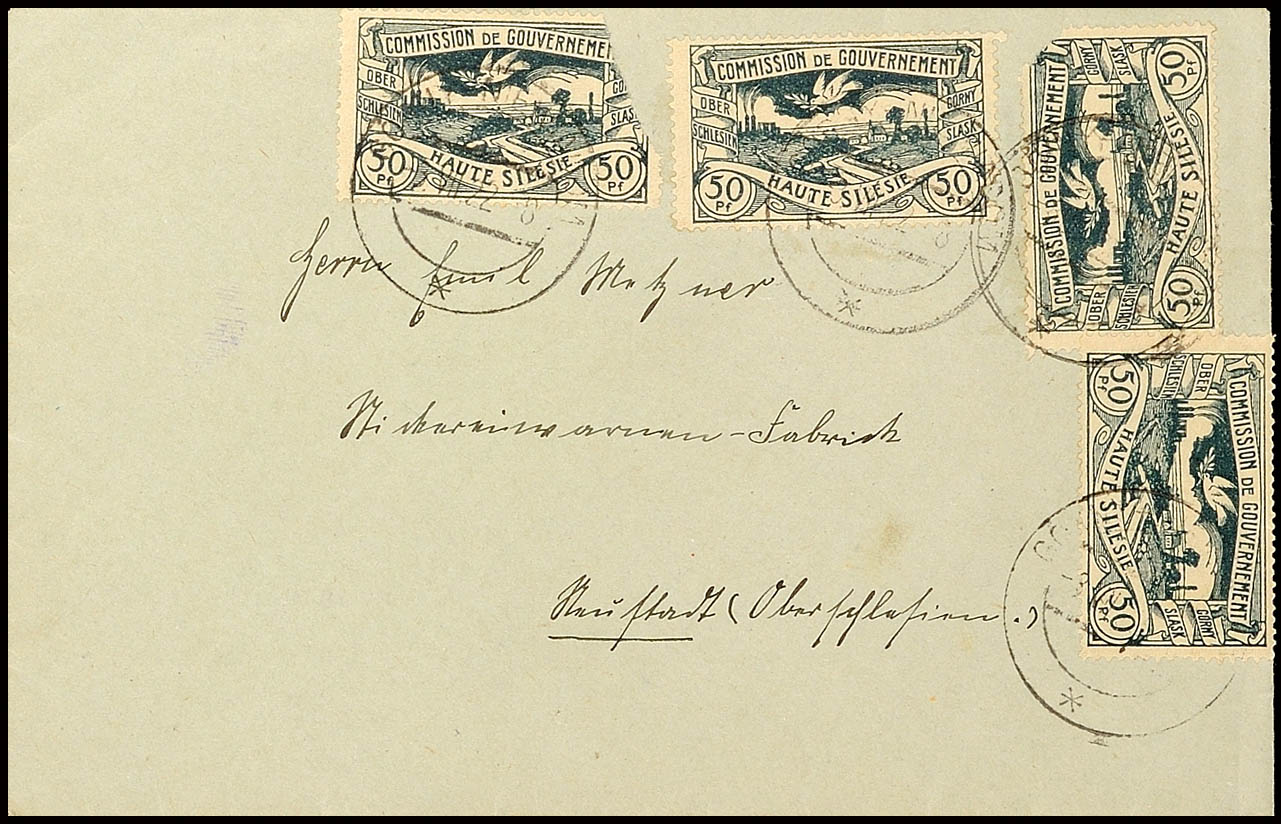 COMMISSION DE GOUVERNEME
OBER SCHLESIEN
GO SLASK
50 Pf HAUTE SILÉSIE 50 Pf
COMMISSION DE GOUVERNEMENT
OBER SCHLESIEN
GORNY SLASK
50 Pf HAUTE SILÉSIE 50 Pf
COMMISSION DE GOUVERNEMENT
OBER SCHLESIEN
GORNY SLASK
50 Pf HAUTE SILÉSIE 50 Pf
COMMISSION DE GOUVERNEMENT
OBER SCHLESIEN
GORNY SLASK
50 Pf HAUTE SILÉSIE 50 Pf
Herrn Emil Metzner
Stickereiwarnen-Fabrick
Neustadt (Oberschlesien.)